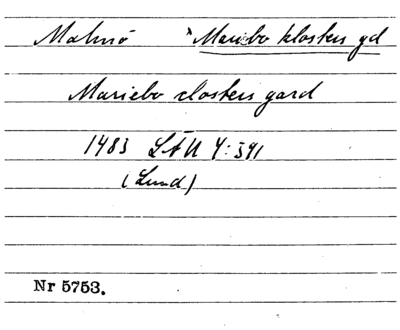 Malmö *Maribo klosters gd
Mariebo closters gard
1483 LÄU 4:391
(Lund)
Nr 5753.